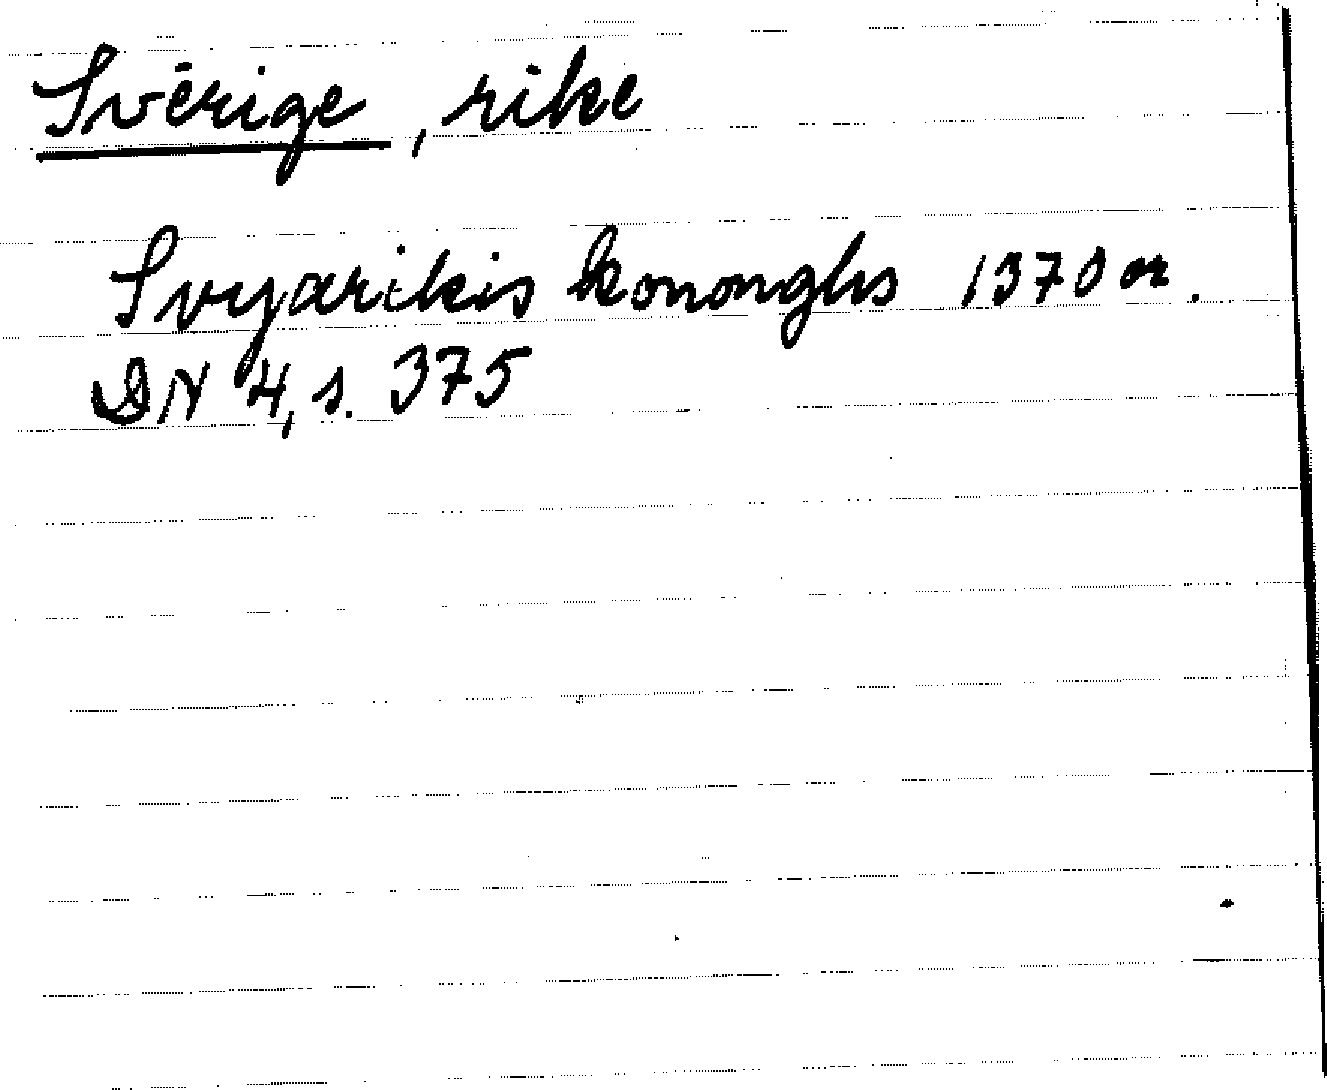 Sverige, rike
Svyarikis kononghs 1370 or.
DN 4, s. 375